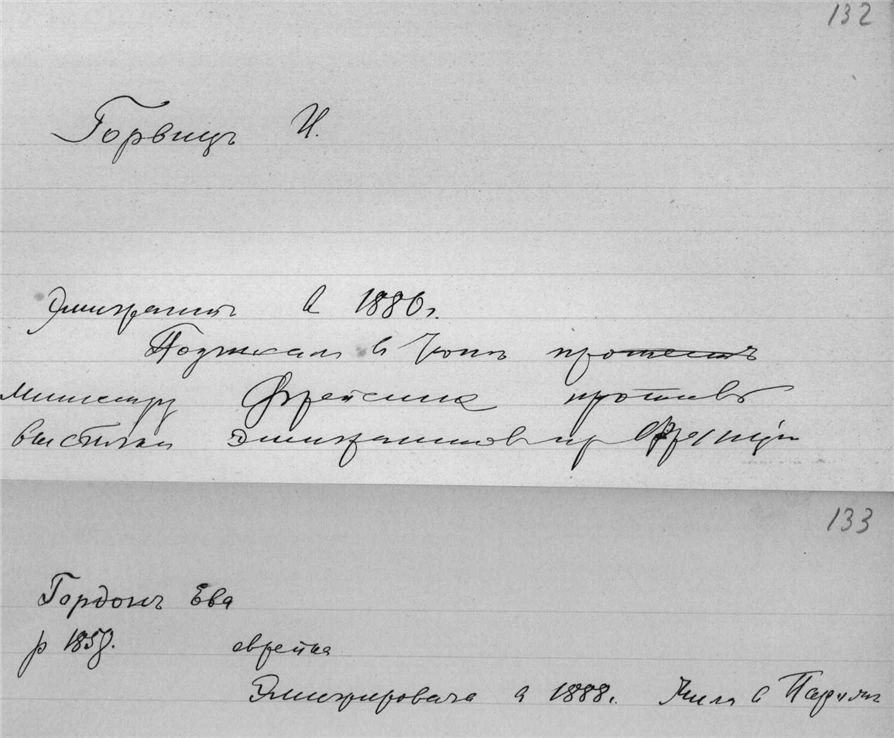 132
Горвицъ И.
Эмигрантъ в 1886г.
Подписалъ в протестъ
министру Фрейсине противъ
высылки эмигрантов из Франции
133
Гордонъ Ева
р 1858. еврейка
Эмигрировала в 1888г. Жила в Париже